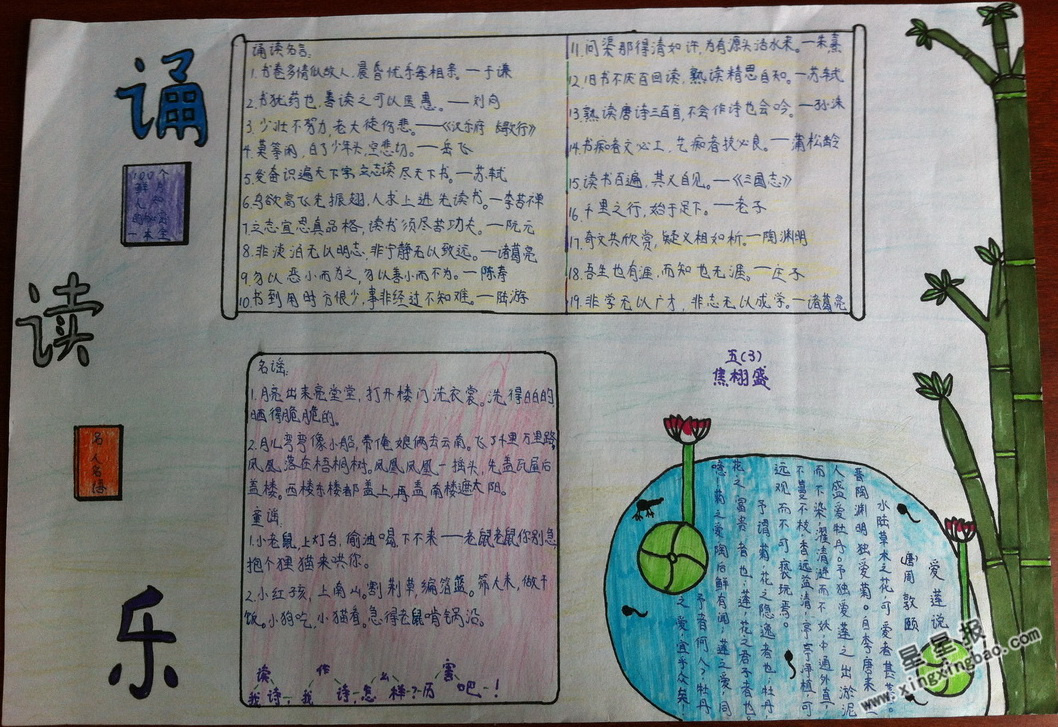 诵
读
乐
诵读名言:
1.书卷多情似故人,晨昏忧乐每相亲。—于谦
2.书犹药也,善读之可以医愚。——刘向
3.少壮不努力,老大徒伤悲。——《汉乐府 长歌行》
4.莫等闲,白了少年头,空悲切。——岳飞
5.发奋识遍天下字,立志读尽天下书。—苏轼
6.鸟欲高飞先振翅,人求上进先读书。—李苦禅
7.立志宜思真品格,读书须尽苦功夫。—阮元
8.非淡泊无以明志,非宁静无以致远。—诸葛亮
9.勿以恶小而为之,勿以善小而不为。—陈寿
10.书到用时方恨少,事非经过不知难。—陆游
11.问渠那得清如许,为有源头活水来。—朱熹
12.旧书不厌百回读,熟读精思自知。—苏轼
13.熟读唐诗三百首,不会作诗也会吟。—孙洙
14.书痴者文必工,艺痴者技必良。—蒲松龄
15.读书百遍,其义自见。—《三国志》
16.千里之行,始于足下。—老子
17.奇文共欣赏,疑义相如析。—陶渊明
18.吾生也有涯,而知也无涯。—庄子
19.非学无以广才,非志无以成学。—诸葛亮
名人名语
名谣:
1.月亮出来亮堂堂,打开楼门洗衣裳。洗得白白的,
晒得脆脆的。
2.月儿弯弯像小船,带俺娘俩去云南。飞了千里万里路,
凤凰落在梧桐树。凤凰凤凰一摇头,先盖瓦屋后
盖楼。西楼东楼都盖上,再盖南楼遮太阳。
童谣:
1.小老鼠,上灯台,偷油喝,下不来——老鼠老鼠你别急,
抱个狸猫来哄你。
2.小红孩,上南山,割荆草,编筲蓝。筛大米,做干
饭。小狗吃,小猫看。急得老鼠啃锅沿。
读 作 么 害
我 诗,我 诗,怎 样?历 吧!
五(3)
焦栩盛
爱莲说
唐周敦颐
水陆草木之花,可爱者甚蕃。
晋陶渊明独爱菊。自李唐来,
人盛爱牡丹。予独爱莲之出淤泥
而不染,濯清涟而不妖,中通外直,
不蔓不枝,香远益清,亭亭净植,可
远观而不可亵玩焉。
予谓菊,花之隐逸者也,牡丹,
花之富贵者也;莲,花之君子者也。
噫,菊之爱,陶后鲜有闻,莲之爱,同
予者何人?牡丹
之爱,宜乎众矣
星星报
www.xingxingbao.com